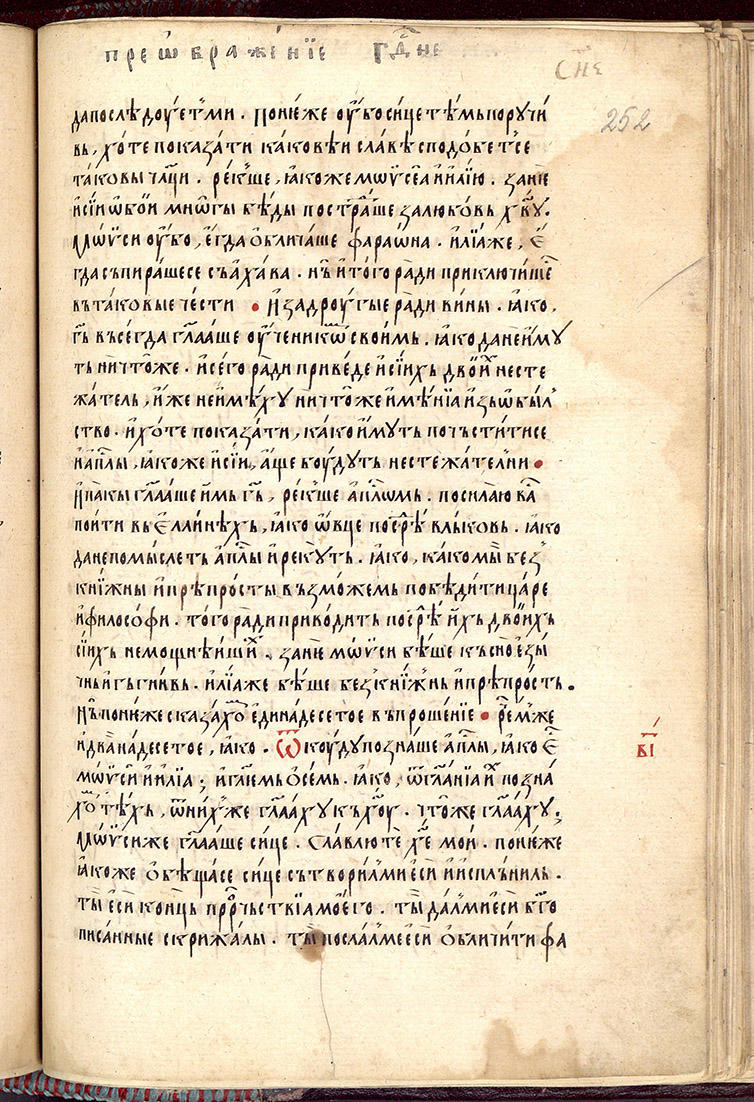 преѡбраже́нїе гд҇не
сн҃є
252
да послѣдоуѥт ми . поне́же оу҆́бо си́це те́мь пороучи́
вь , хо́те показа́ти какове́и сла́ве сподо́бетсе
тако́вы ча́ци . ре́кше , ꙗ҆́коже мѡѷсе́а и҆ и҆лі́ю . зане̏
и҆ сїи ѡ҆бо́и мнѡ́гы бѣ́ды постра́ше за любо́вь х҇ву .
Мѡѷси оу҆́бо , є҆гда̀ ѡ҆блича́ше фараѡ́на . и҆лїа́же , є҆
гда̀ съпира́шесе съ а҆ха́ва . нь̏ и҆ того̀ ра́ди приключи́ше
въ тако́вые че́сти • И҆ за дроугы́е ра́ди вины̀ . ꙗ҆́ко ,
г҇ь въсегда̀ гл҃а́аше оу҆ченикѡ́м свои́мь . ꙗ҆́ко да не и҆́му
ть ничто́же . и҆ сего̀ ра́ди приве́де и҆ сїи́хь двои́х несте
жа́тель , и҆́же не и҆ме́ху ничто́же и҆ме́нїа и҆зьѡ҆би́л
ство . и҆ хо́те показа́ти , ка́ко и҆́муть почъсти́тисе
и҆ а҆п҇лы , ꙗ҆́коже и҆ сїи , а҆́ще боу́дуть нестежа́телни •
И҆ па́кы гл҃а́аше и҆мь г҇ь , ре́кше а҆п҇лѡмь . посила́ю ва́
поити въ є҆́лаинѣхь , ꙗ҆́ко ѡ҆́вце посре́ влькѡвь . ꙗ҆́ко
да не помы́слеть а҆п҇лы и҆ реку́ть . ꙗ҆́ко , ка́ко мы̏ без
кни́жны и҆ прѣпро́сты възмо́жемь побѣди́ти ца́ре
и҆ филосо́фи . того̀ ра́ди приво́дить посре́ и҆́хь двои́хь
сїи́хь немощнѣи́ших . зане̏ мѡѷси бе́ше късное҆зы́
чьн и҆ гъгни́вь . и҆лїа́же бе́ше безкни́жнь и҆ прѣпро́сть .
Нь̏ поне́же сказа́хом є҆дина́десетое въпроше́нїе • ре́м же
и҆ два на́десетое , ꙗ҆́ко . Ѿкоу́ду позна́ше а҆п҇лы , ꙗ҆́ко є҆̑
мѡѷси и҆ и҆лїа ; и҆ гл҃емь ѻ҆се́мь . ꙗ҆́ко , ѿ гл҃а́нїа и҆х позна́
хом те́хь , ѿ ни́х же гл҃а́аху къ х҇оу . что́же гл҃а́аху .
Мѡѷси же гл҃а́аше си́це . Сла́влю те х҇е мои . поне́же
ꙗ҆́коже ѻ҆бѣща́се си́це сътвори́л ми є҆сѝ и҆ и҆спльниль .
ты̏ є҆сѝ коне́ць прр҇очьствїа мое҆го . ты̏ да́л ми є҆сѝ бг҃о
писа́нные скрижа́лы . ты̏ посла́л ме є҆сѝ ѻ҆бличи́ти фа
в҃і